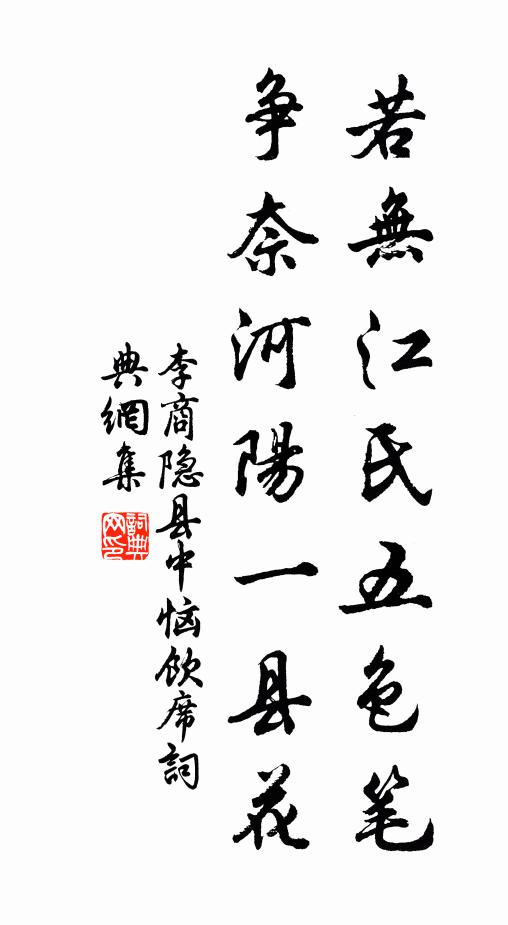 若無江氏五色笔
争奈河陽一县花
李商隐县中恼飲席詞
典網集
詞典
网印